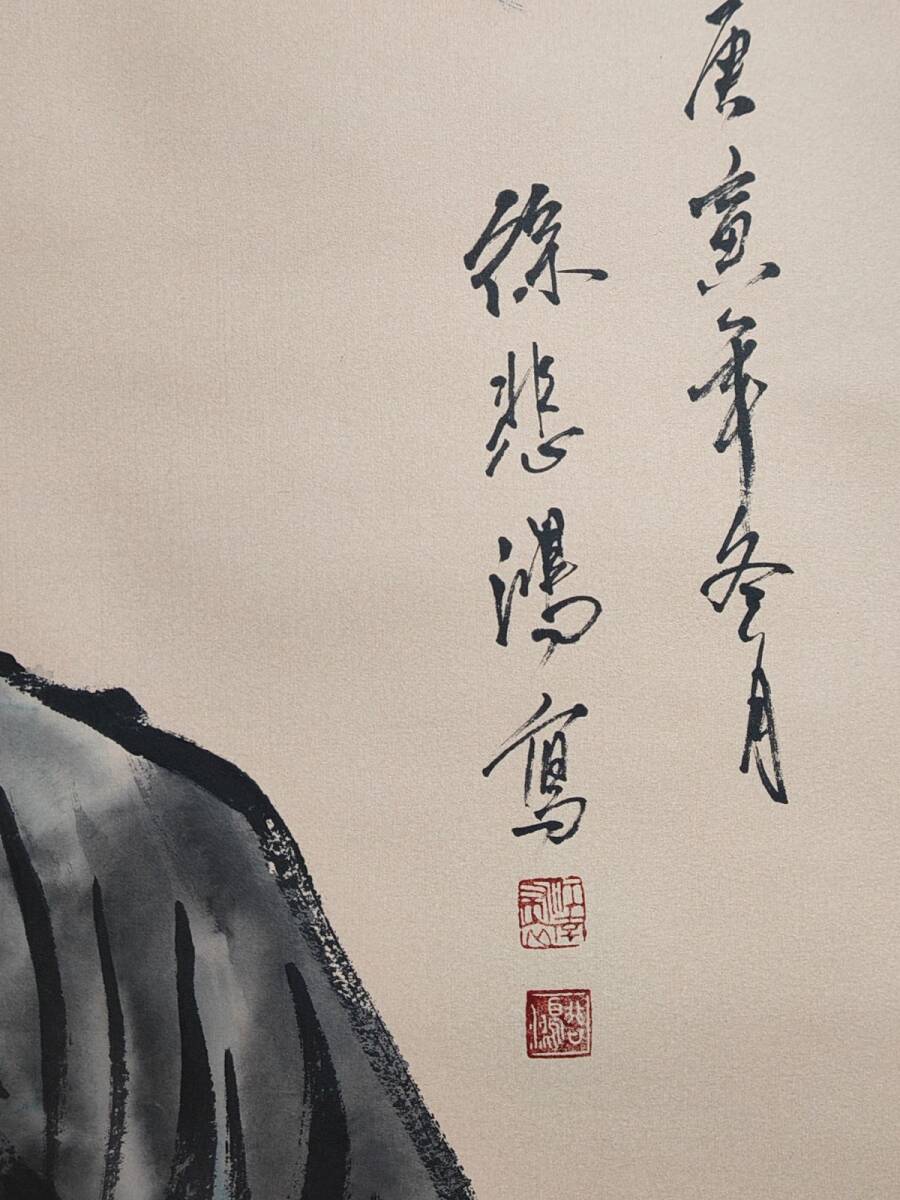 庚寅年冬月
徐悲鴻寫